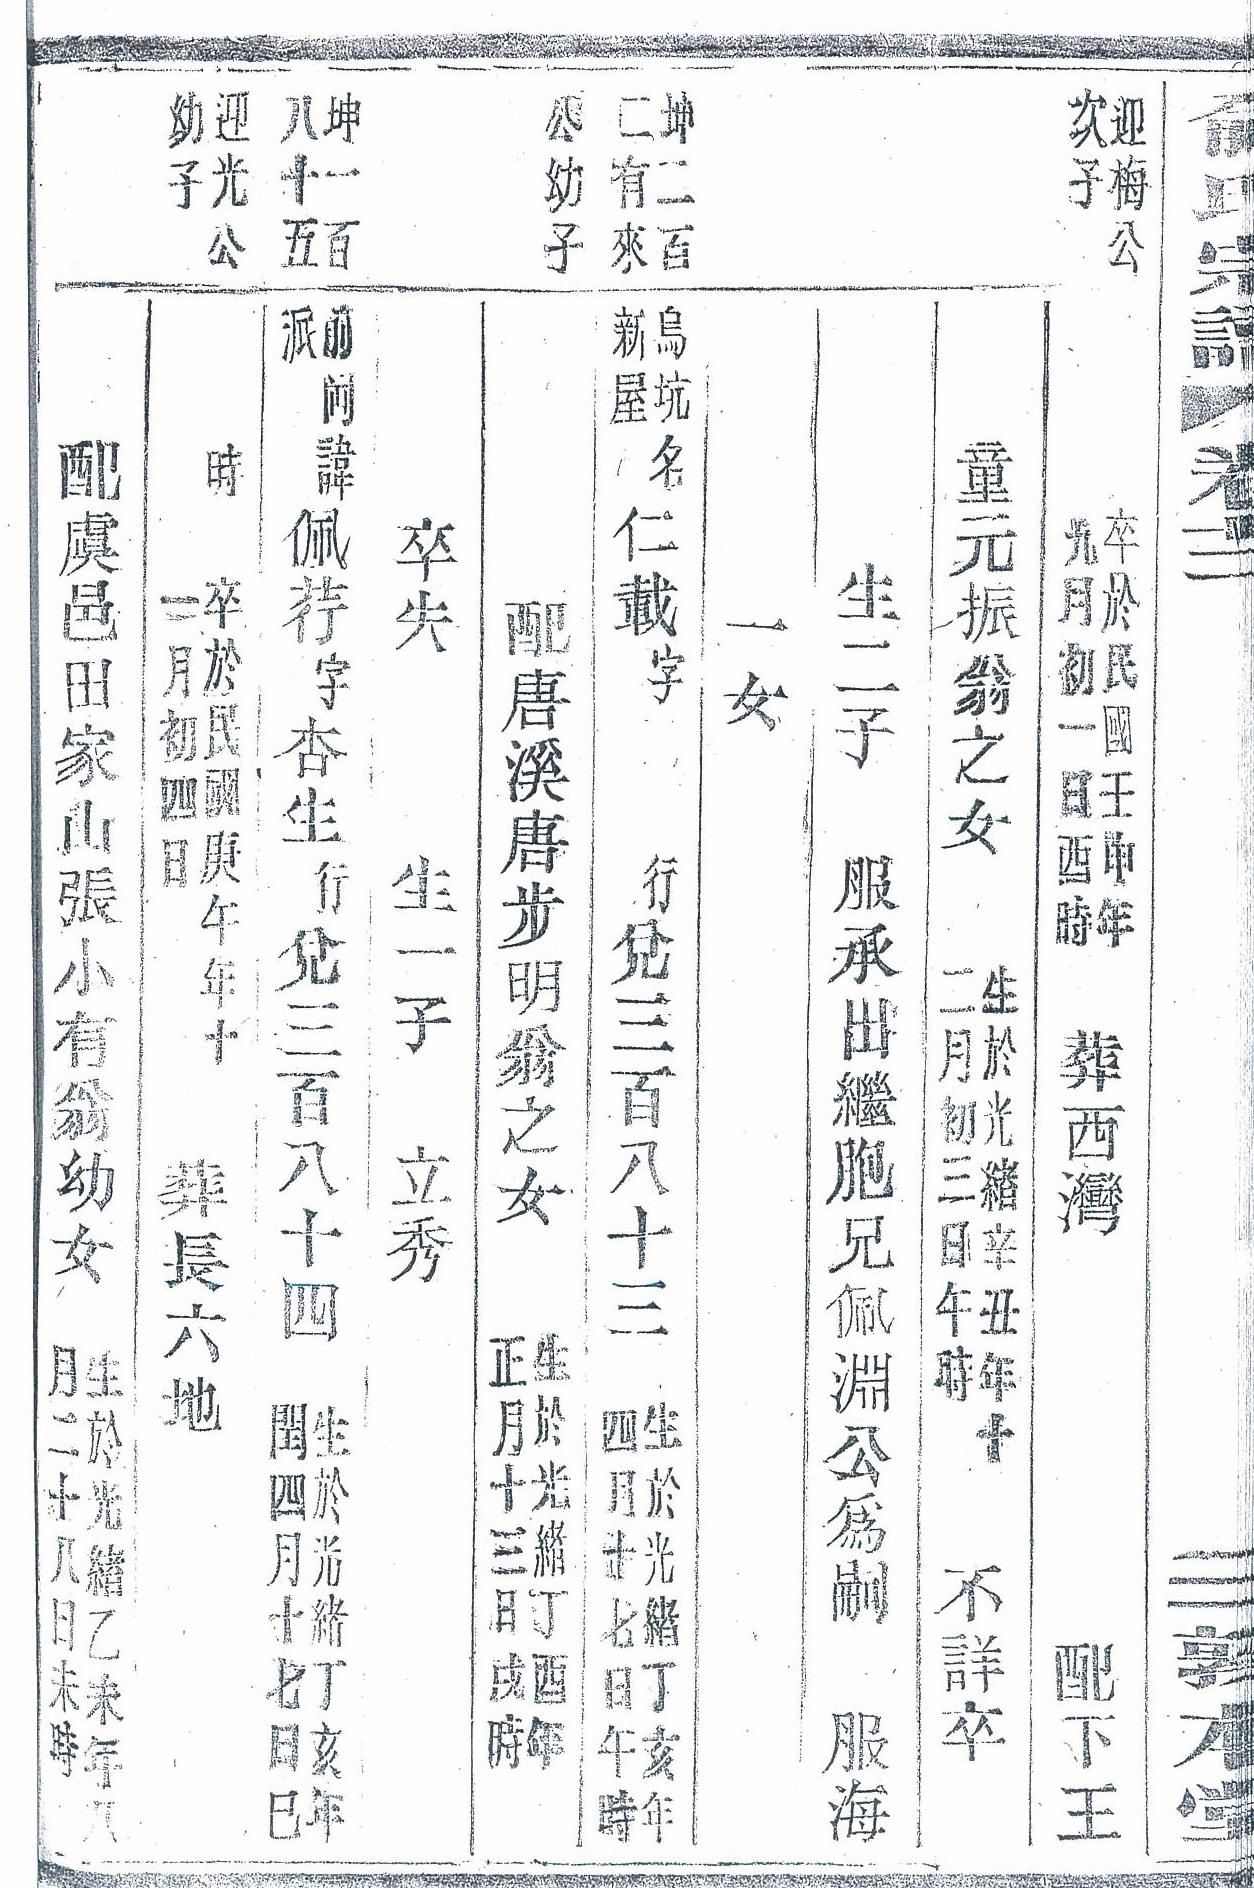 俞氏宗譜 卷二 敦本堂
迎梅公
次子
卒於民國壬申年
九月初一日酉時
葬西灣 配下王
童元振翁之女
生於光緒辛丑年十
二月初三日午時
不詳卒
生二子 服承出繼胞兄佩淵公爲嗣 服海
一女
坤二百
二有來
公幼子
烏坑
新屋
名仁載字 行兌三百八十三
生於光緒丁亥年
四月廿七日午時
配唐溪唐步明翁之女
生於光緒丁酉年
正月十三日戌時
卒失 生一子 立秀
坤一百
八十五
迎光公
幼子
前岡
派
諱佩荇字杏生行兌三百八十四
生於光緒丁亥年
閏四月十七日巳
時
卒於民國庚午年十
二月初四日
葬長六地
配虞邑田家山張小有翁幼女
生於光緒乙未年八
月二十八日未時